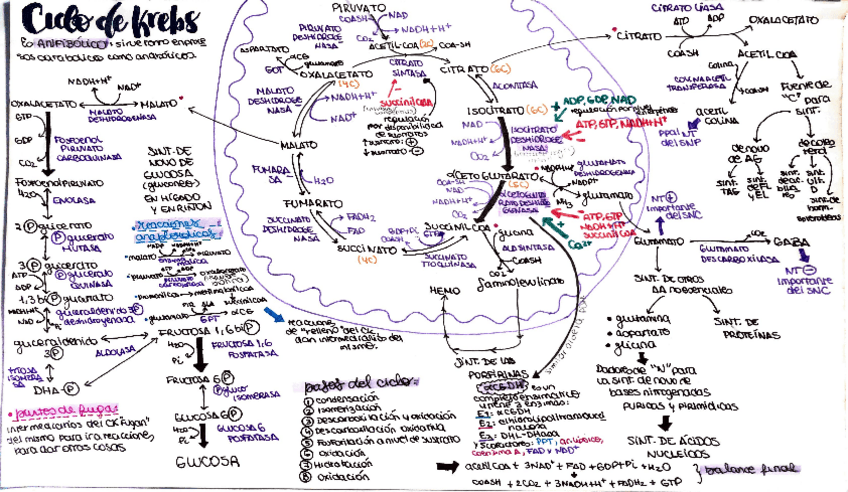 Ciclo de Krebs
Es ANFIBÓLICO, sirve tanto en proce
sos catabólicos como anabólicos.
NADH+H⁺
NAD⁺
OXALACETATO
MALATO
MALATO
DESHIDROGENASA
GTP
GDP
CO₂
FOSFOENOL
PIRUVATO
CARBOQUINASA
FOSFOENOLPIRUVATO
H₂O
ENOLASA
2 P glicerato
P glicerato
MUTASA
3 P glicerato
ATP
ADP
P glicerato
QUINASA
1,3 bi P glicerato
NADH+H⁺
NAD
gliceraldehído 3P
deshidrogenasa
gliceraldehído
3P
TRIOSA
ISOMERA
SA
ALDOLASA
DHA-P
SÍNT. DE
NOVO DE
GLUCOSA
(gluconeo)
EN HÍGADO
Y EN RIÑÓN
Reacciones
anapleróticas:
malato
piruvato
glutamato
αCG
GPT
FRUCTOSA 1,6 biP
H₂O
Pi
FRUCTOSA 1,6
FOSFATASA
FRUCTOSA 6P
ISOMERASA
GLUCOSA 6P
H₂O
Pi
GLUCOSA 6
FOSFATASA
GLUCOSA
puntos de fuga:
intermediarios del CK "fugan"
del mismo para ir a reacciones
para dar otras cosas
reacciones
de "relleno" del CK,
dan intermediarios del
mismo.
PIRUVATO
COASH
NAD
PIRUVATO
DESHIDROGE
NASA
NADH+H⁺
CO₂
ACETIL-COA (2C)
COA-SH
ASPARTATO
αCG
glutamato
GOT
OXALACETATO
(4C)
CITRATO
SINTASA
CITRATO (6C)
succinil coa
regulación
por disponibilidad
de sustratos
MALATO
DESHIDROGE
NASA
NADH+H⁺
NAD⁺
MALATO
FUMARA
SA
H₂O
FUMARATO
SUCCINATO
DESHIDROGE
NASA
FADH₂
FAD
SUCCINATO
(4C)
GDP+Pi
GTP
COASH
SUCCINATO
TIOQUINASA
SUCCINIL COA
ACONITASA
ISOCITRATO (6C)
ADP, GDP, NAD
ATP, GTP, NADH+H⁺
NAD
NADH+H⁺
CO₂
ISOCITRATO
DESHIDROGE
NASA
αCETOGLUTARATO
(5C)
COA-SH
NAD
NADH+H⁺
CO₂
αCETOGLUTA
RATO DESHIDRO
GENASA
ATP, GTP
NADH+H⁺
succinil coa
Ca²⁺
NADPH+H⁺
NADP⁺
NH₃
glutamato
deshidrogenasa
glutamato
glicina
ALA SINTASA
COASH
CO₂
δ amolevulínico
HEMO
SÍNT. DE LAS
PORFIRINAS
pasos del ciclo:
1 condensación
2 isomerización
3 Descarboxilación y oxidación
4 Descarboxilación oxidativa
5 Fosforilación a nivel de sustrato
6 oxidación
7 Hidratación
8 Oxidación
αCGDH es un
complejo enzimático
y tiene 3 enzimas:
E1: αCGDH
E3: DHL-DHasa
y 5 cofactores: PPT, ac lipoico,
coenzima A, FAD y NAD⁺
acetil COA + 3NAD⁺ + FAD + GDP+Pi + H₂O
COASH + 2CO₂ + 3NADH+H⁺ + FADH₂ + GTP
balance final
CITRATO LIASA
CITRATO
ATP
ADP
COASH
OXALACETATO
ACETIL COA
colina
COLINA ACETIL
TRANSFERASA
COASH
acetil
colina
ppal NT
del SNP
Fuente de
"C" para
sínt.
de novo
de AG
sínt.
TAG
sínt.
de FL
y EL
de coles
terol
sínt.
sales
bilia
res
sínt.
vit
D
sínt. de
hormonas
esteroideas
NT +
importante
del SNC
Glutamato
CO₂
GLUTAMATO
DESCARBOXILASA
GABA
NT −
importante
del SNC
SÍNT. DE OTROS
AA no esenciales
glutamina
aspartato
glicina
SÍNT. DE
PROTEÍNAS
Dadores de "N" para
la sínt. de novo de
bases nitrogenadas
PÚRICAS y pirimídicas
SÍNT. DE ÁCIDOS
NUCLEICOS